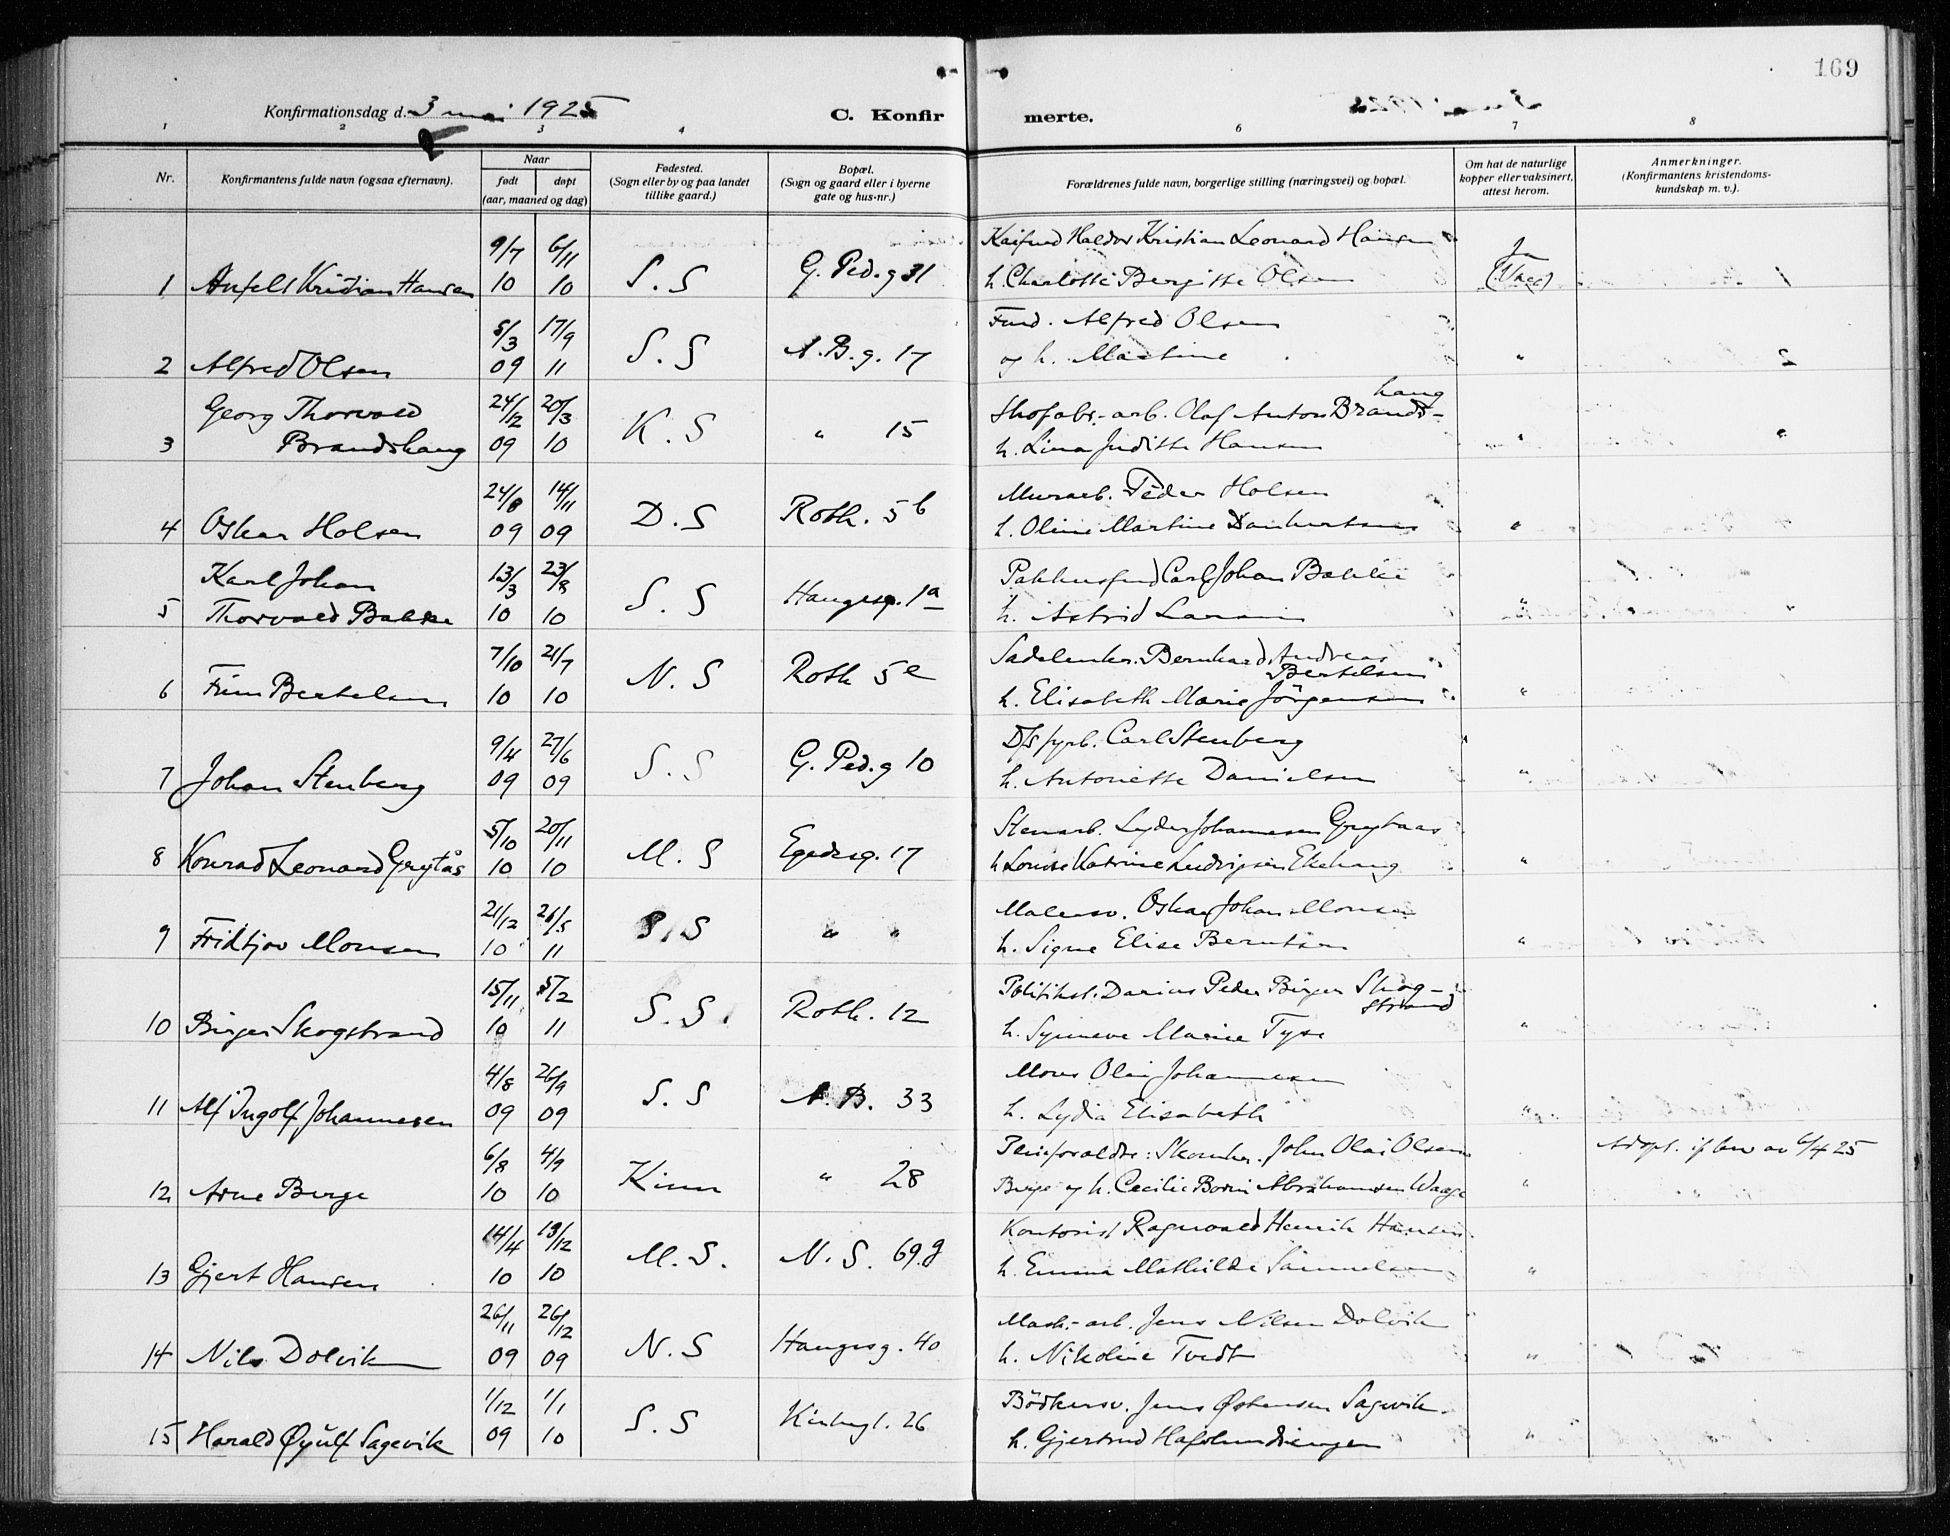 169
Konfirmationsdag d. 3 mai 1925
C. Konfirmerte.
1 2 3 4 6 7 8
Nr.
Konfirmantens fulde navn (ogsaa efternavn).
Naar
født
døpt
(aar, maaned og dag)
Fødested.
(Sogn eller by og paa landet
tillike gaard.)
Bopæl.
(Sogn og gaard eller i byerne
gate og hus-nr.)
Forældrenes fulde navn, borgerlige stilling (næringsvei) og bopæl.
Om hat de naturlige
kopper eller vaksinert,
attest herom.
Anmerkninger.
(Konfirmantens kristendoms-
kundskap m. v.).
9/7 6/11 Haldor Kristian Leonard Hansen Ja
1 Kristian Hansen 10 10 S. S G. Ped. g 31 h. Charlotte Bergitte Olsen (Vacc)
5/3 17/9 Alfred Olsen
2 Alfred Olsen 09 11 S. S A. B. g. 17 og h. Martine "
Georg Thorvald 24/12 20/3 Skofabr.-arb. Olaf Anton Brands-haug
3 Brandshaug 09 10 K. S " 15 h. Lina Judith Hansen "
24/8 14/11 Murarb. Peder Holsen
4 Oskar Holsen 09 09 D. S Roth. 5 b h. Oline Martine "
Karl Johan 13/3 23/8 Carl Johan Bakke
5 Thorvald Bakke 10 10 S. S Haugesg. 1a h. Astrid "
7/10 21/7 Bernhard Andreas
Bertelsen
6 Finn Bertelsen 10 10 N. S Roth 5 e h. Elisabeth Marie Jörgensen "
9/4 27/6 D/S fyrb. Carl Stenberg
7 Johan Stenberg 09 09 S. S G. Ped. g 10 h. Antonette Danielsen "
5/10 20/11 Stenarb. Lyder Johannesen Grytaas
8 Konrad Leonard Grytås 10 10 M. S Egedesg. 17 h Louise Katrine Ludvigsen Ekehaug "
21/12 26/5 Malersv. Oskar Johan Monsen
9 Fridtjov Monsen 10 11 S. S " " h. Signe Elise Berntsen "
15/11 5/2 Politikst. Darius Peder Birger Skog-
strand
10 Birger Skogstrand 10 11 S. S. Roth. 12 h. Synneve Marie "
4/8 26/9 Olai Johannesen
11 Alf Ingolf Johannesen 09 09 S. S A. B. 33 h. Lydia Elisabeth "
6/8 4/9 Pleieforældre: Skomker. John Olai Olsen Adopt. if bev av 6/4 25
12 Arne Berge 10 10 Kinn " 28 Berge og h. Cecilie Abrahamsen Waage "
14/4 19/12 Kontorist Ragnvald Henrik Hansen
13 Gjert Hansen 10 10 M. S. N. S. 69. g h. Emma Mathilde Samuelsen "
26/11 26/12 Mask.-arb. Jens Nilsen Dolvik
14 Nils Dolvik 09 09 N. S Haugesg. 40 h. Nikoline Tvedt "
1/12 1/1 Bödkersv. Jens Østensen Sagevik
15 Harald Øyulf Sagevik 09 10 S. S 26 h. Gjertrud "